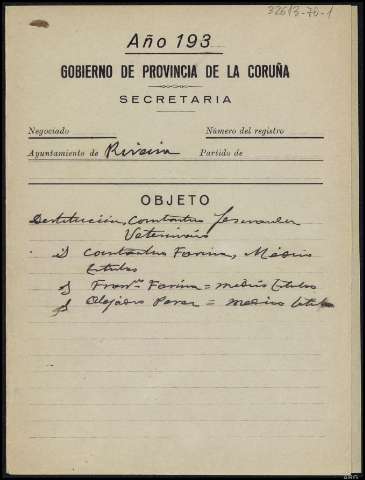 32613-70-1
Año 193
GOBIERNO DE PROVINCIA DE LA CORUÑA
SECRETARIA
Negociado Número del registro
Ayuntamiento de Riveira Partido de
OBJETO
Destitucion, Constantino
Veterinario
id Constantino Farina, Médico
titular
id Franco Farina = medico titular
id Alejandro Perez = medico titular